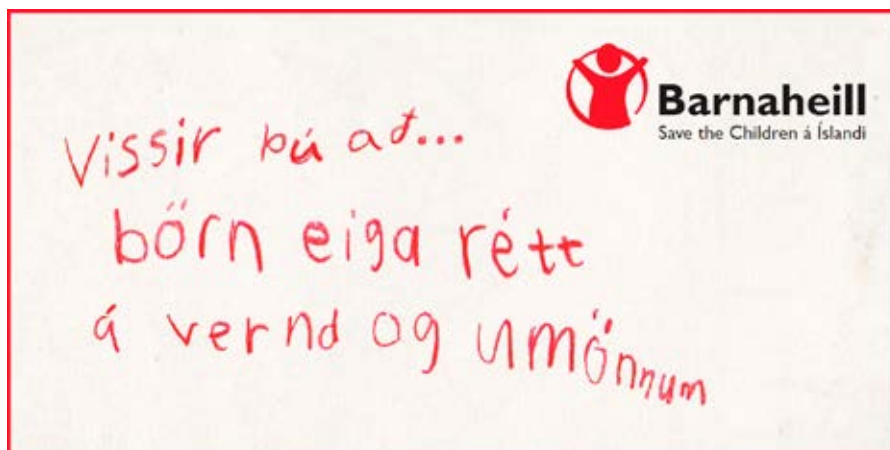 Barnaheill
Save the Children á Íslandi
Vissir þú að...
börn eiga rétt
á vernd og umönnum